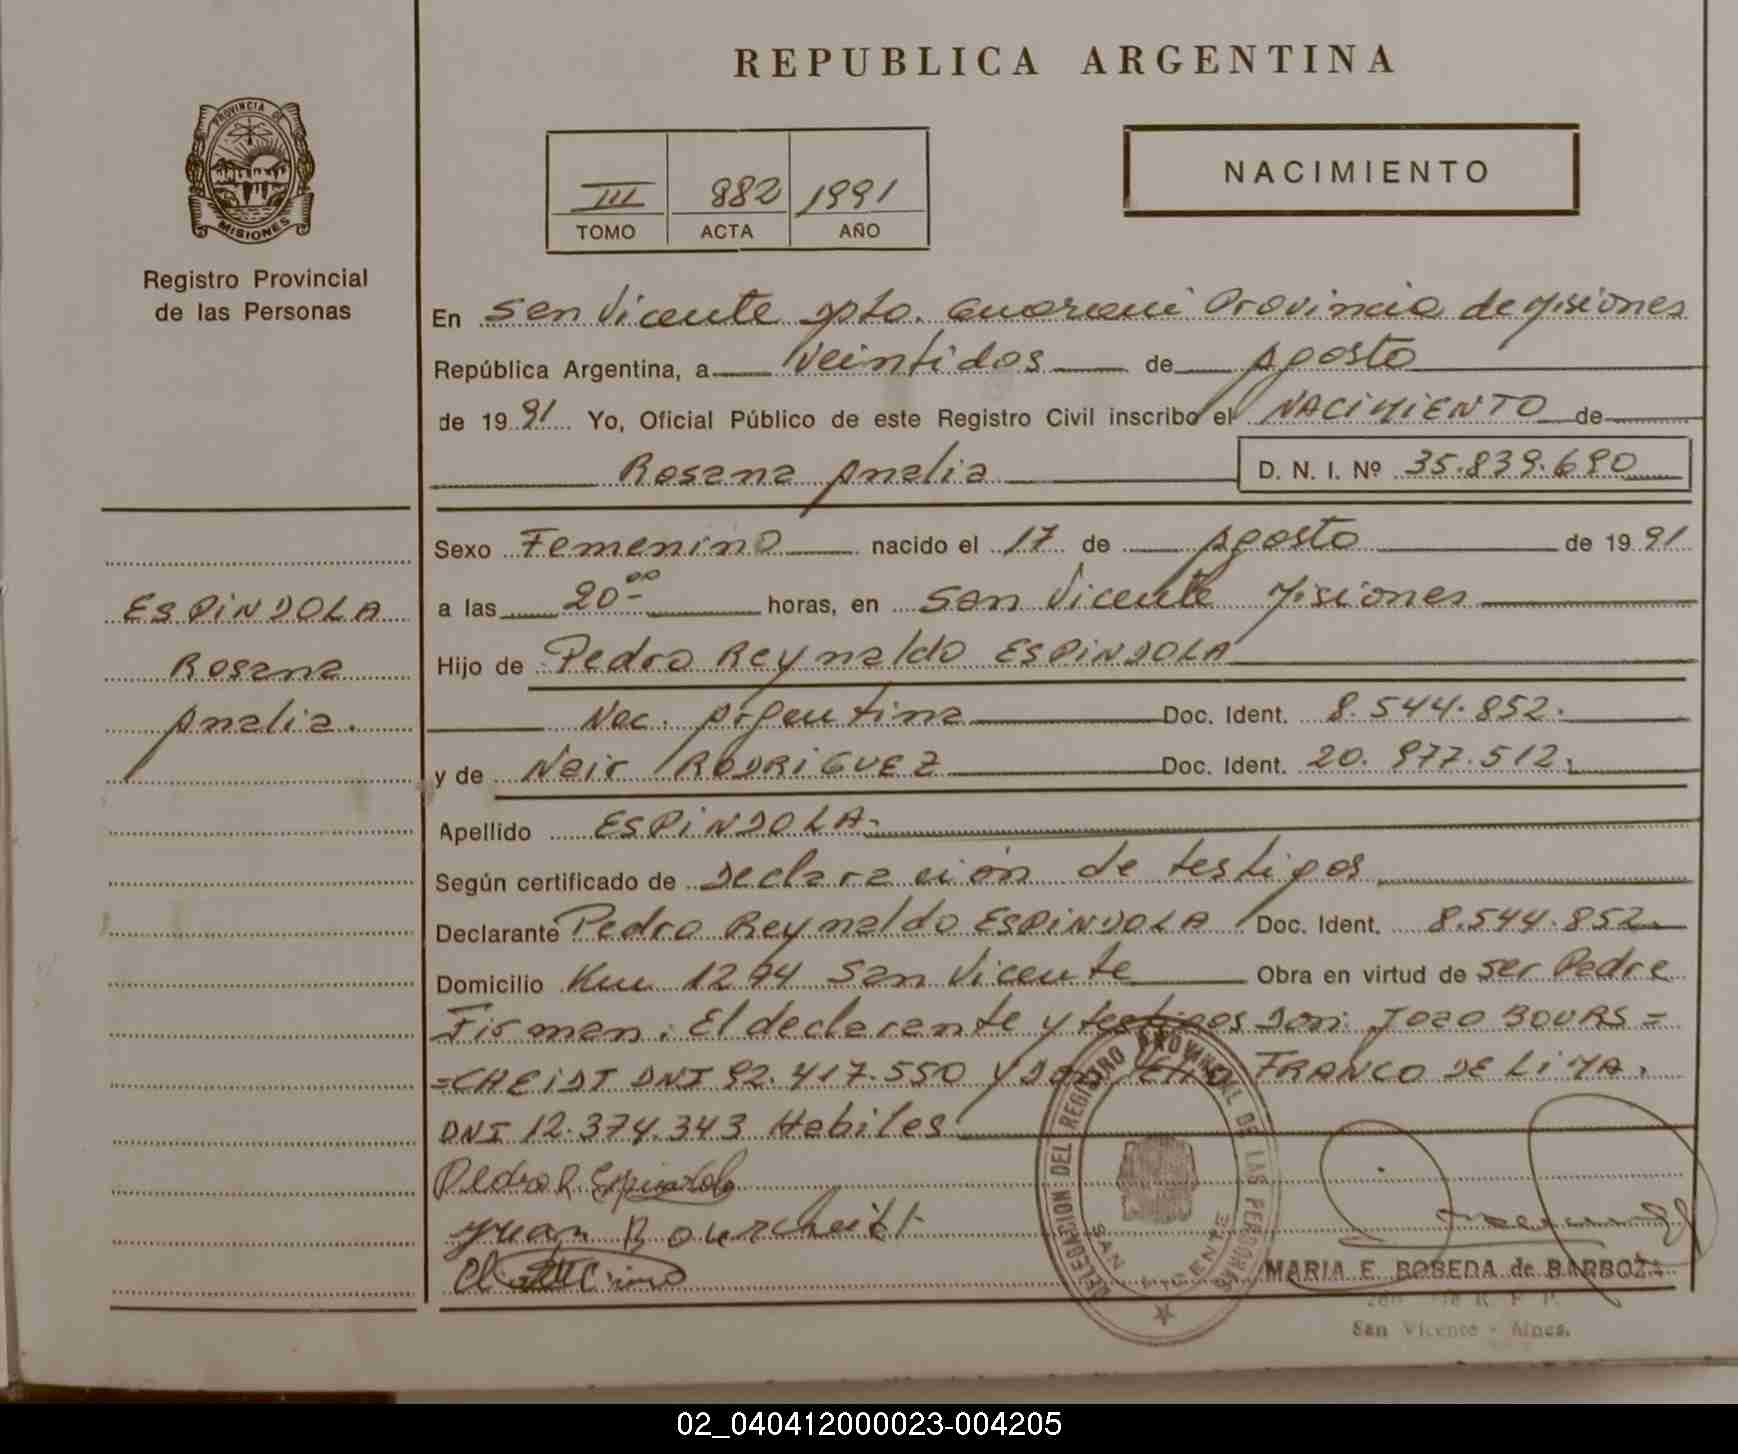 REPUBLICA ARGENTINA
PROVINCIA DE
MISIONES
Registro Provincial
de las Personas
NACIMIENTO
III 882 1991
TOMO ACTA AÑO
En San Vicente Dpto. Guarani Provincia de Misiones
República Argentina, a veintidos de Agosto
de 1991 Yo, Oficial Público de este Registro Civil inscribo el NACIMIENTO de
Rosana Analia D. N. I. Nº 35.839.690
Sexo Femenino nacido el 17 de Agosto de 1991
ESPINDOLA
Rosana
Analia.
a las 20-00 horas, en San Vicente Misiones
Hijo de Pedro Reynaldo ESPINDOLA
Nac. Argentina Doc. Ident. 8.544.852.
y de Nair RODRIGUEZ Doc. Ident. 20.977.512.
Apellido ESPINDOLA.
Según certificado de Declaración de testigos
Declarante Pedro Reynaldo ESPINDOLA Doc. Ident. 8.544.852
Domicilio Km 1294 San Vicente Obra en virtud de ser Padre
Firman. El declarante y testigos Don: Joao BOURS=
=CHEIDT DNI 92.417.550 y Don FRANCO DE LIMA.
DNI 12.374.343 Habiles
Pedro R. Espindola
Juan Bourscheidt
DELEGACION DEL REGISTRO PROVINCIAL DE LAS PERSONAS
SAN VICENTE
MARIA E. BOBEDA de BARBOZA
R. P. P.
San Vicente - Mnes.
02_040412000023-004205